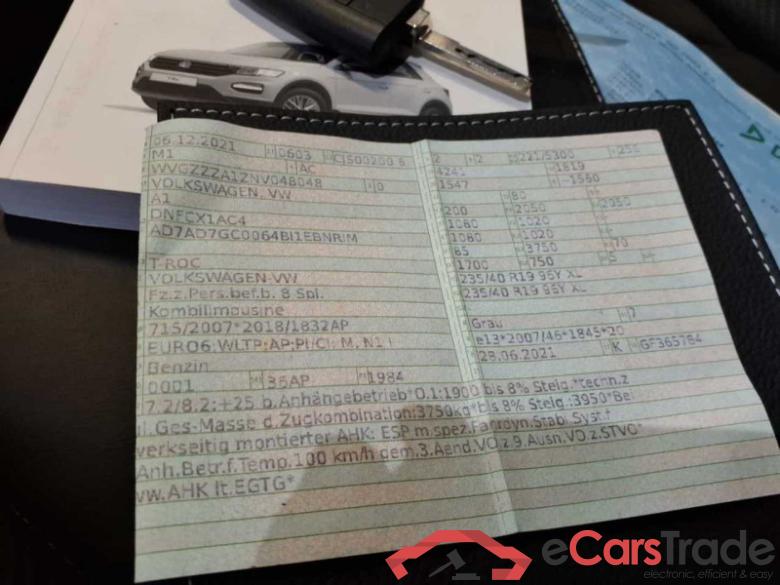 06.12.2021
M1 0603
AC
WVGZZZA1ZNV048048 0
VOLKSWAGEN, VW
A1
DNFCX1AC4
AD7AD7GC0064BI1EBNRIM
T-ROC
VOLKSWAGEN-VW
Fz.z.Pers.bef.b. 8 Spl.
Kombilimousine
715/2007*2018/1832AP
EURO6;WLTP;AP;PI/CI; M, N1 I
Benzin
0001 36AP 1984
2 2 5221/5300 250
4241 1819
1547 1560
80
200 2050 2050
1080 1020
1080 1020
65 3750 70
1700 750 5
235/40 R19 96Y XL
235/40 R19 96Y XL
Grau 7
e13*2007/46*1845*20
28.06.2021 K GF365784
7.2/8.2:+25 b.Anhängebetrieb*O.1:1900 bis 8% Steig.*techn.z
l.Ges-Masse d.Zugkombination:3750kg*bis 8% Steig.:3950*Bei
werkseitig montierter AHK: ESP m.spez.Fahrdyn.Stabi.Syst.f
Anh.Betr.f.Temp.100 km/h dem.3.Aend.VO.z.9.Ausn.VO.z.STVO*
ww.AHK lt.EGTG*
eCarsTrade
electronic, efficient & easy